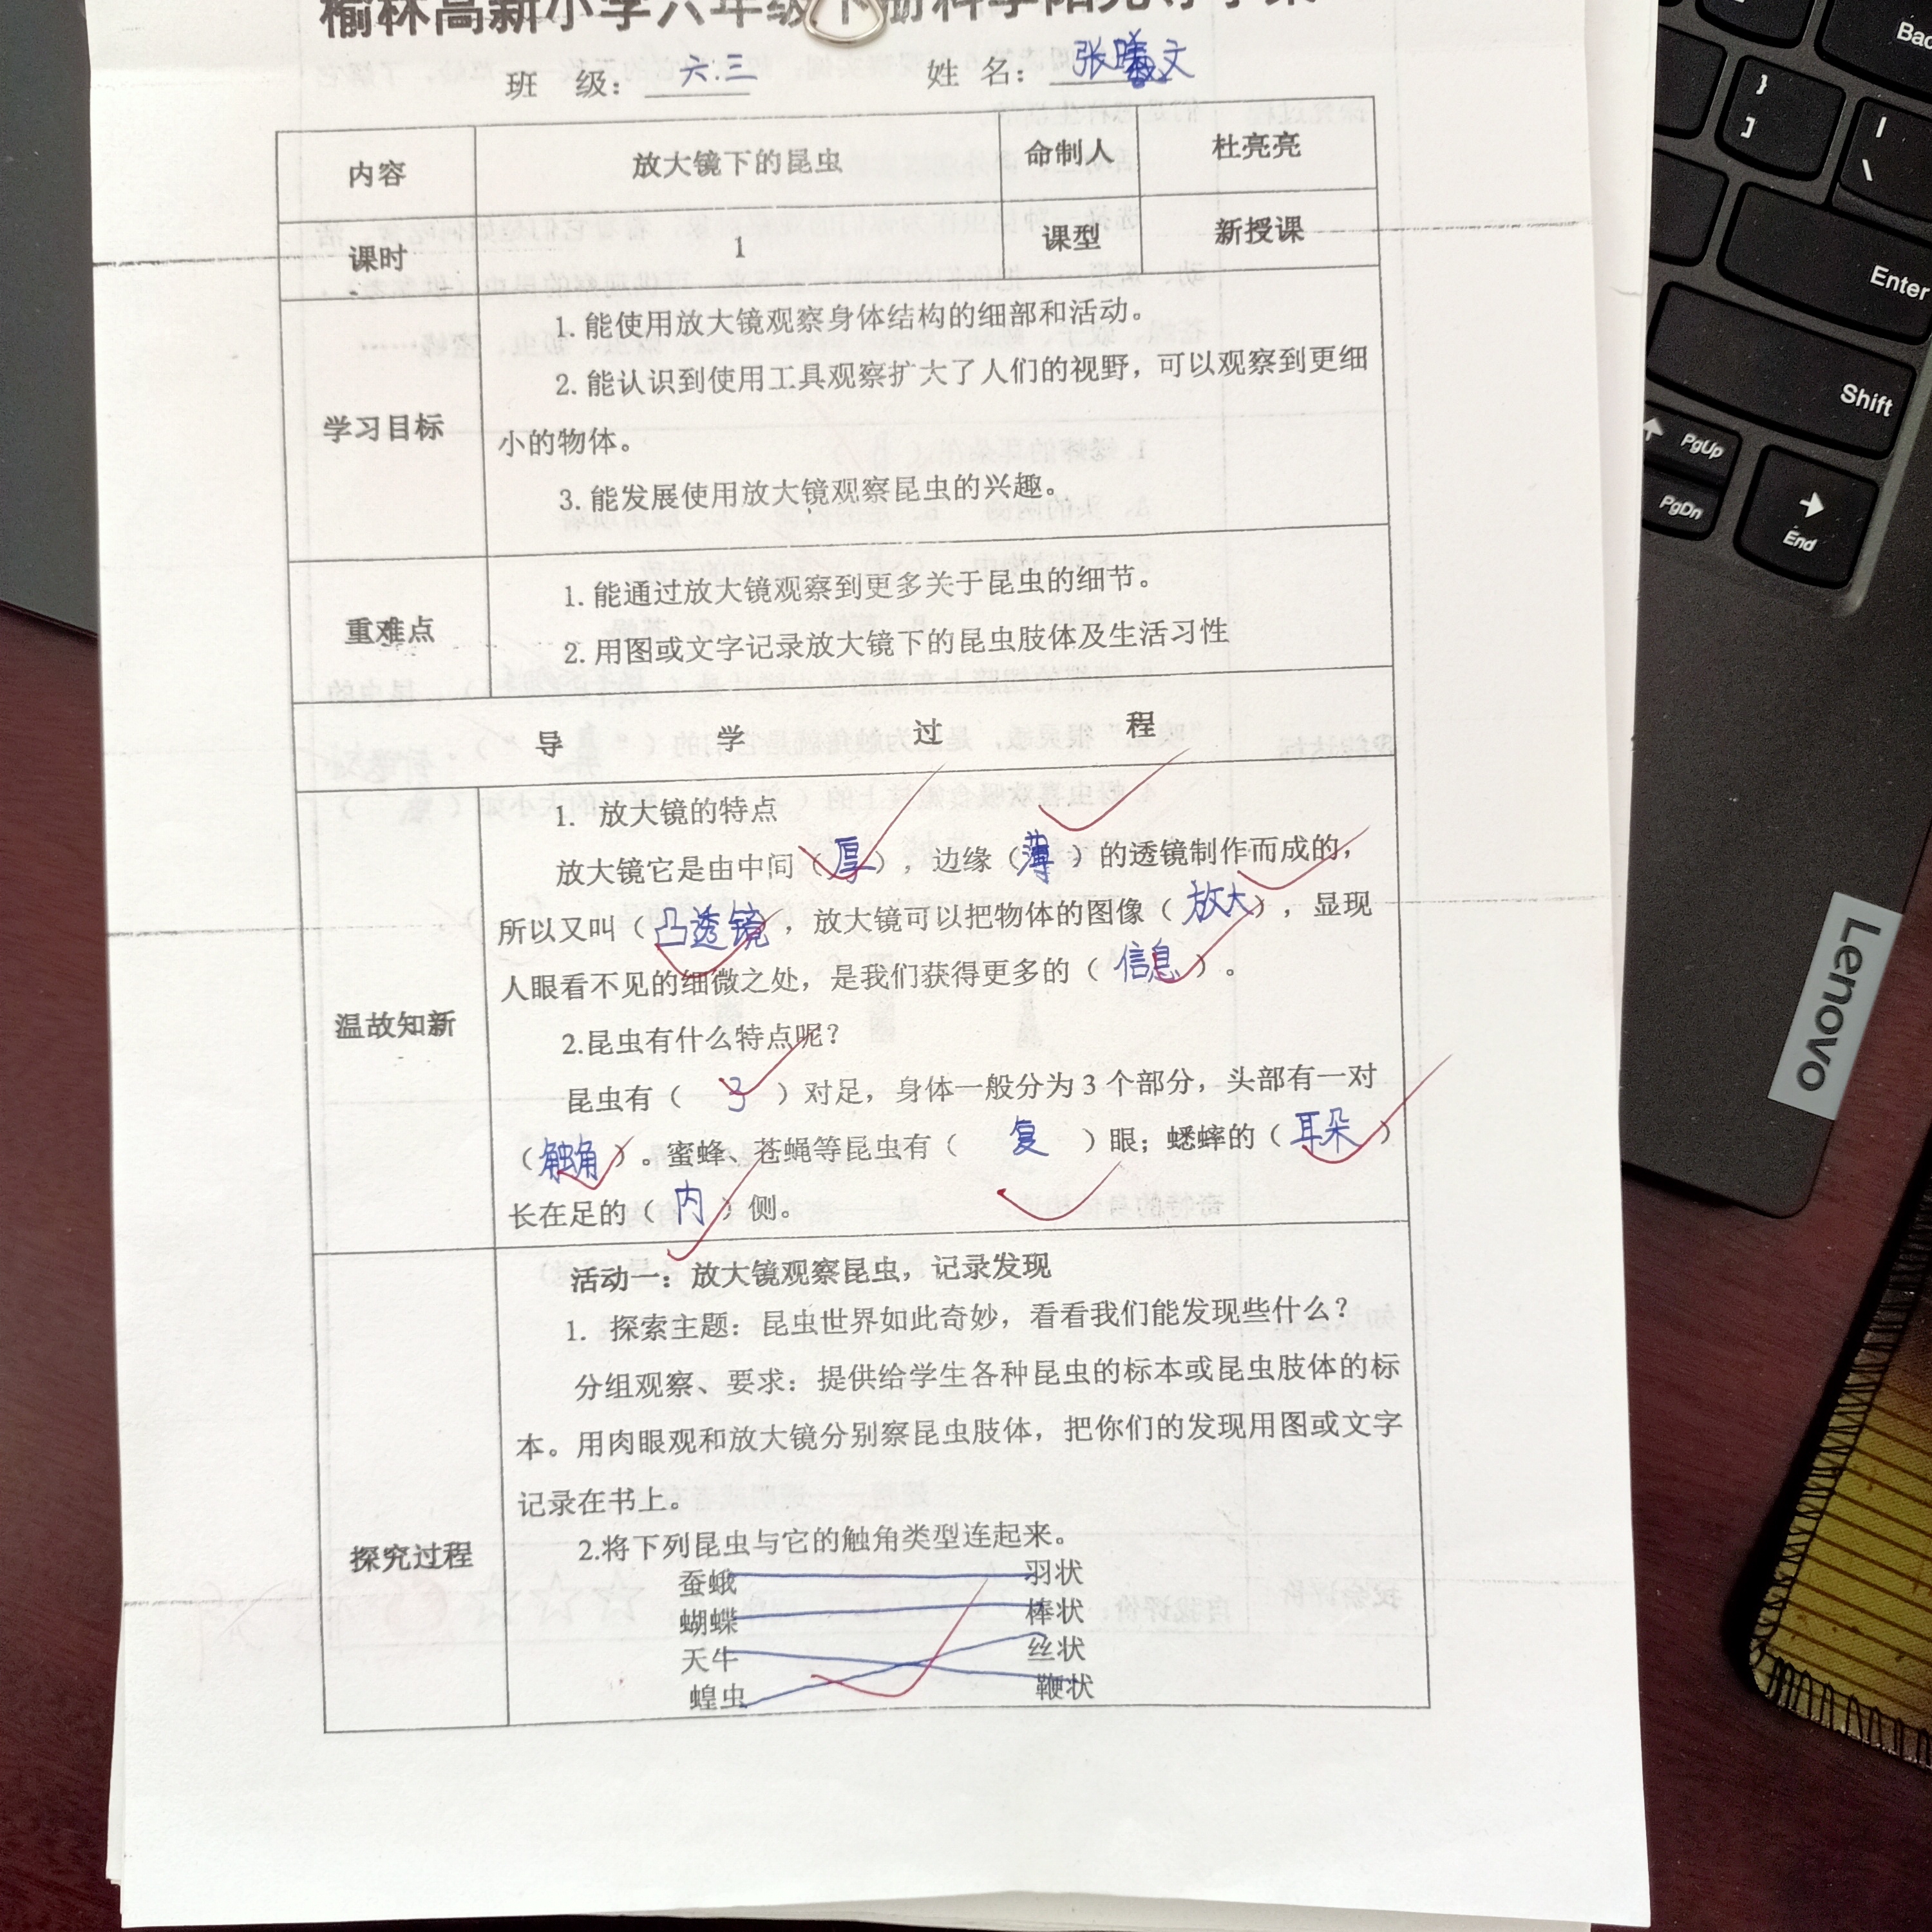 榆林高新小学六年级下册科学阳光导学案
班 级：六.三 姓 名：张曦文
内容 放大镜下的昆虫 命制人 杜亮亮
课时 1 课型 新授课
学习目标
1. 能使用放大镜观察身体结构的细部和活动。
2. 能认识到使用工具观察扩大了人们的视野，可以观察到更细
小的物体。
3. 能发展使用放大镜观察昆虫的兴趣。
重难点
1. 能通过放大镜观察到更多关于昆虫的细节。
2. 用图或文字记录放大镜下的昆虫肢体及生活习性
导 学 过 程
温故知新
1. 放大镜的特点
放大镜它是由中间（厚），边缘（薄）的透镜制作而成的，
所以又叫（凸透镜），放大镜可以把物体的图像（放大），显现
人眼看不见的细微之处，是我们获得更多的（信息）。
2.昆虫有什么特点呢？
昆虫有（3）对足，身体一般分为 3 个部分，头部有一对
（触角）。蜜蜂、苍蝇等昆虫有（复）眼；蟋蟀的（耳朵）
长在足的（内）侧。
探究过程
活动一：放大镜观察昆虫，记录发现
1. 探索主题：昆虫世界如此奇妙，看看我们能发现些什么？
分组观察、要求：提供给学生各种昆虫的标本或昆虫肢体的标
本。用肉眼观和放大镜分别察昆虫肢体，把你们的发现用图或文字
记录在书上。
2.将下列昆虫与它的触角类型连起来。
蚕蛾 羽状
蝴蝶 棒状
天牛 丝状
蝗虫 鞭状
Bac
}
]
|
\
Enter
Shift
PgUp
PgDn
End
Lenovo